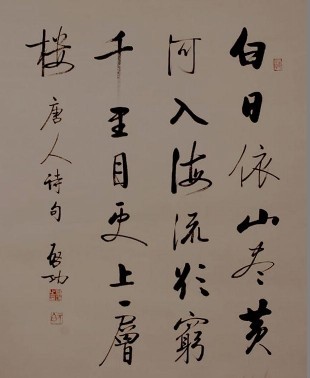 白日依山尽黄
河入海流欲穷
千里目更上一层
楼 唐人诗句 启功